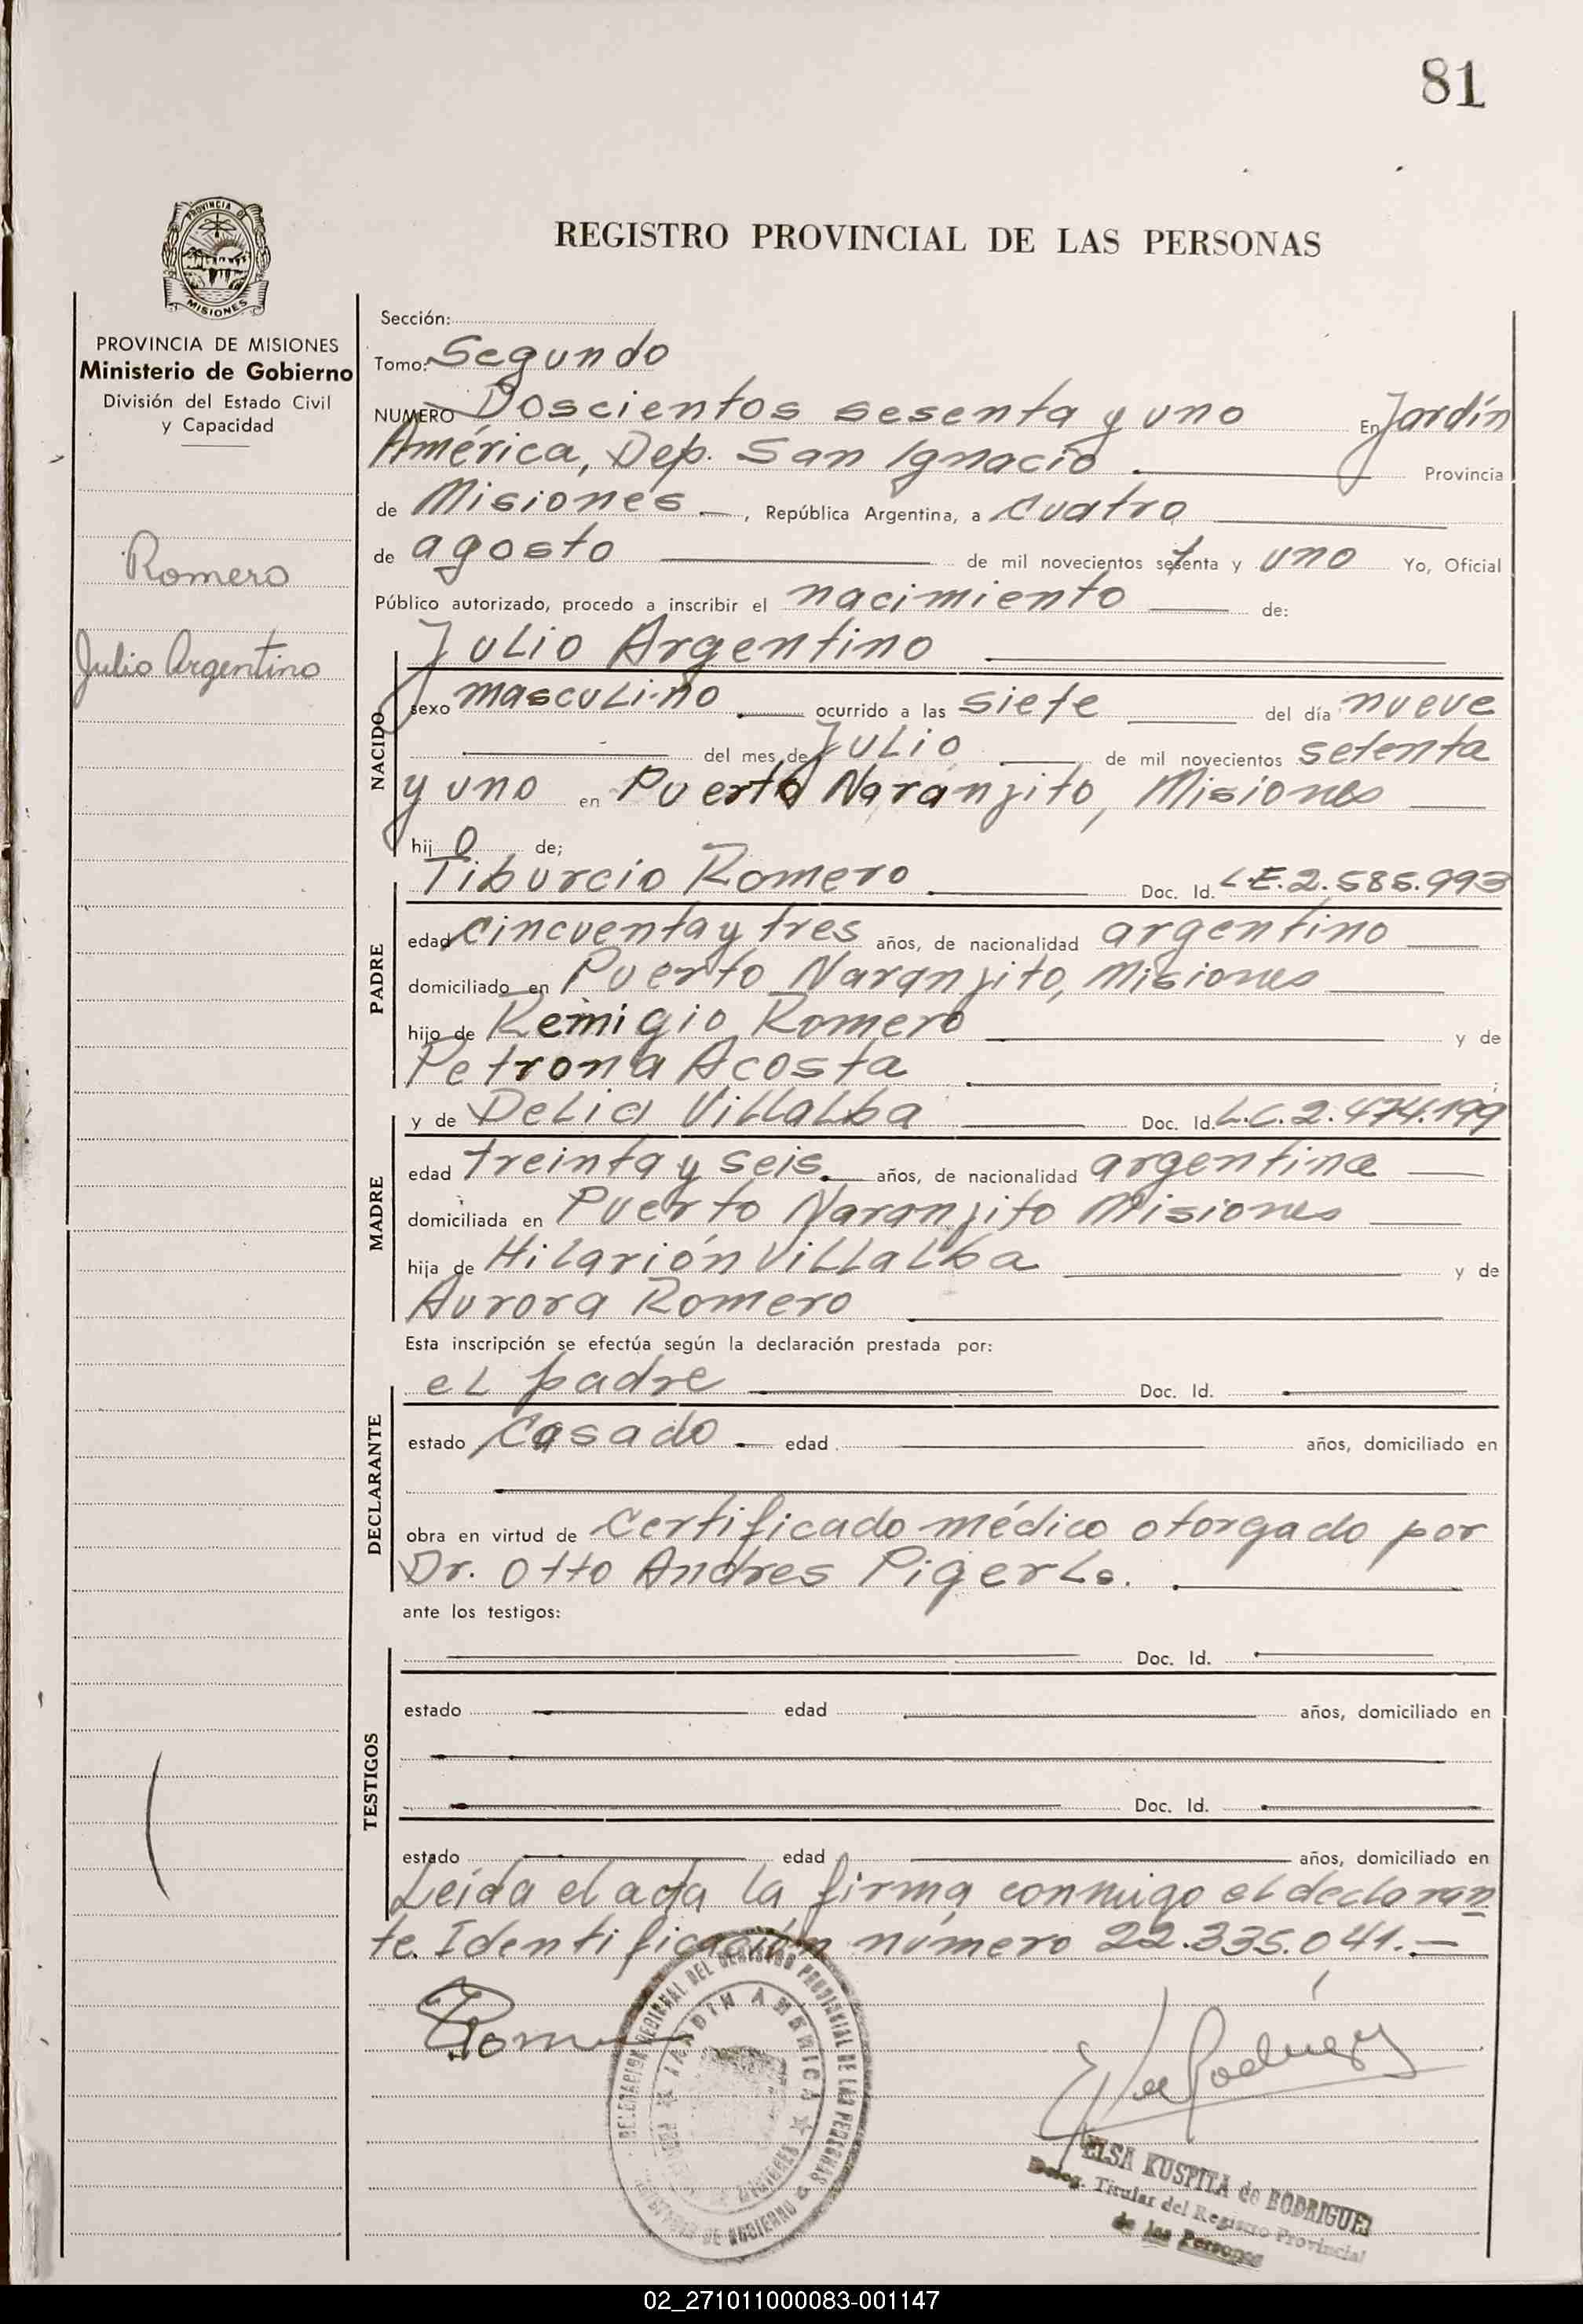 81
PROVINCIA DE
MISIONES
REGISTRO PROVINCIAL DE LAS PERSONAS
PROVINCIA DE MISIONES
Ministerio de Gobierno
División del Estado Civil
y Capacidad
Romero
Julio Argentino
Sección:
Tomo: Segundo
NUMERO Doscientos sesenta y uno En Jardín
América, Dep. San Ignacio Provincia
de Misiones, República Argentina, a cuatro
de agosto de mil novecientos setenta y uno Yo, Oficial
Público autorizado, procedo a inscribir el nacimiento de:
Julio Argentino
NACIDO
sexo masculino ocurrido a las siete del día nueve
del mes de Julio de mil novecientos setenta
y uno en Puerto Naranjito, Misiones
hij o de;
Tiburcio Romero Doc. Id. L.E. 2.585.993
PADRE
edad cincuenta y tres años, de nacionalidad argentino
domiciliado en Puerto Naranjito, Misiones
hijo de Remigio Romero y de
Petrona Acosta ;
y de Delia Villalba Doc. Id. L.C. 2.474.199
MADRE
edad treinta y seis años, de nacionalidad argentina
domiciliada en Puerto Naranjito Misiones
hija de Hilarión Villalba y de
Aurora Romero
Esta inscripción se efectúa según la declaración prestada por:
el padre Doc. Id.
DECLARANTE
estado casado edad años, domiciliado en
obra en virtud de certificado médico otorgado por
Dr. Otto Andres Pigerl.
ante los testigos:
Doc. Id.
TESTIGOS
estado edad años, domiciliado en
Doc. Id.
estado edad años, domiciliado en
Leída el acta la firma conmigo el declaran
te. Identificación número 22.335.041.-
DELEGACION REGIONAL DEL REGISTRO PROVINCIAL DE LAS PERSONAS
JARDIN AMERICA
MISIONES
MINISTERIO DE GOBIERNO
ELSA KUSPITA de RODRIGUEZ
Deleg. Titular del Registro Provincial
de las Personas
02_271011000083-001147